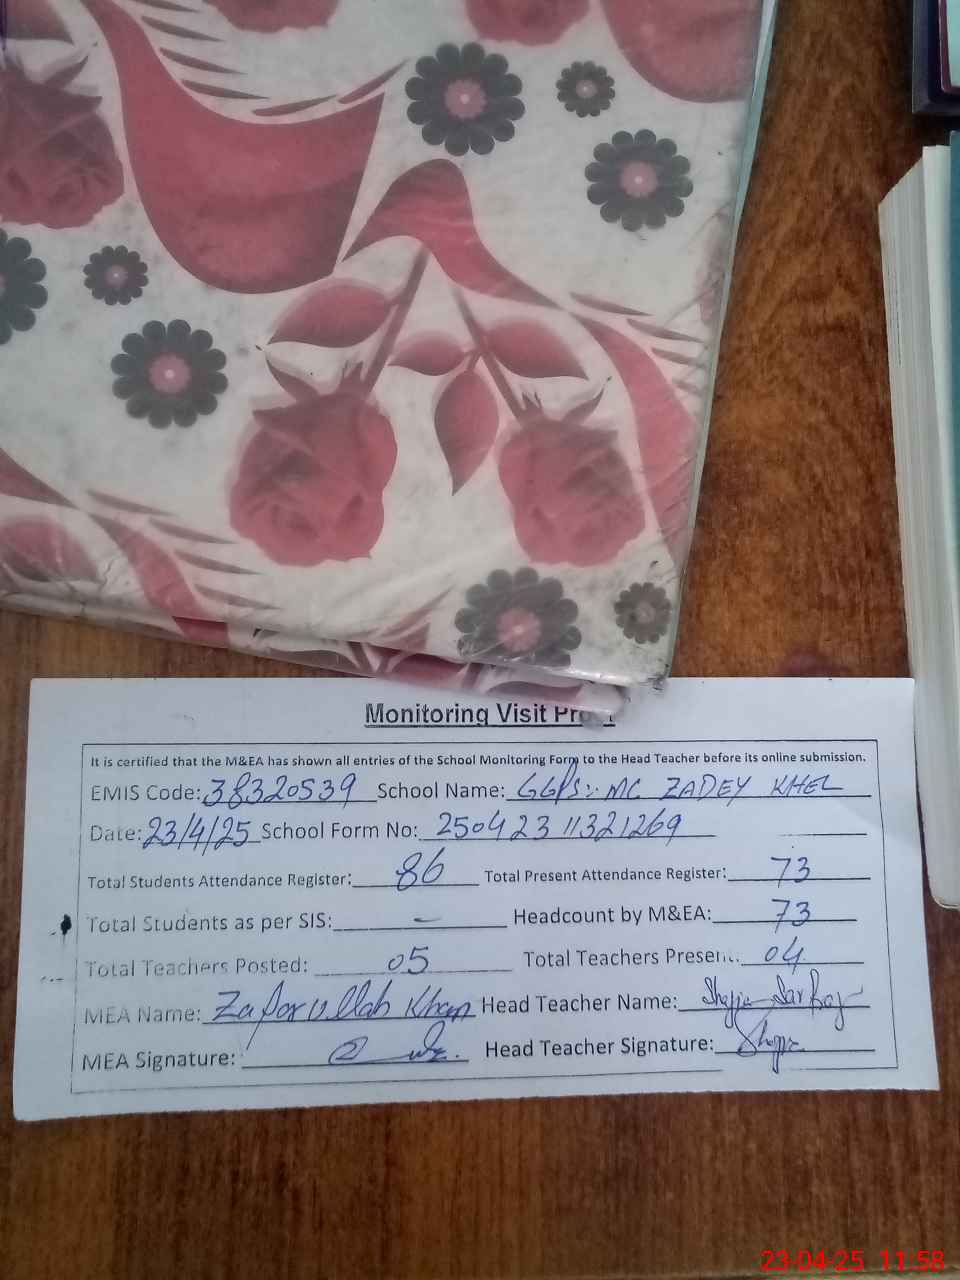 Monitoring Visit
It is certified that the M&EA has shown all entries of the School Monitoring Form to the Head Teacher before its online submission.
EMIS Code: 38320539 School Name: GGPS:- MC ZADEY KHEL
Date: 23/4/25 School Form No: 250423 11321269
Total Students Attendance Register: 86 Total Present Attendance Register: 73
Total Students as per SIS: - Headcount by M&EA: 73
Total Teachers Posted: 05 Total Teachers Present: 04
MEA Name: Zafar ullah Khan Head Teacher Name:
MEA Signature: Head Teacher Signature:
23-04-25 11:58